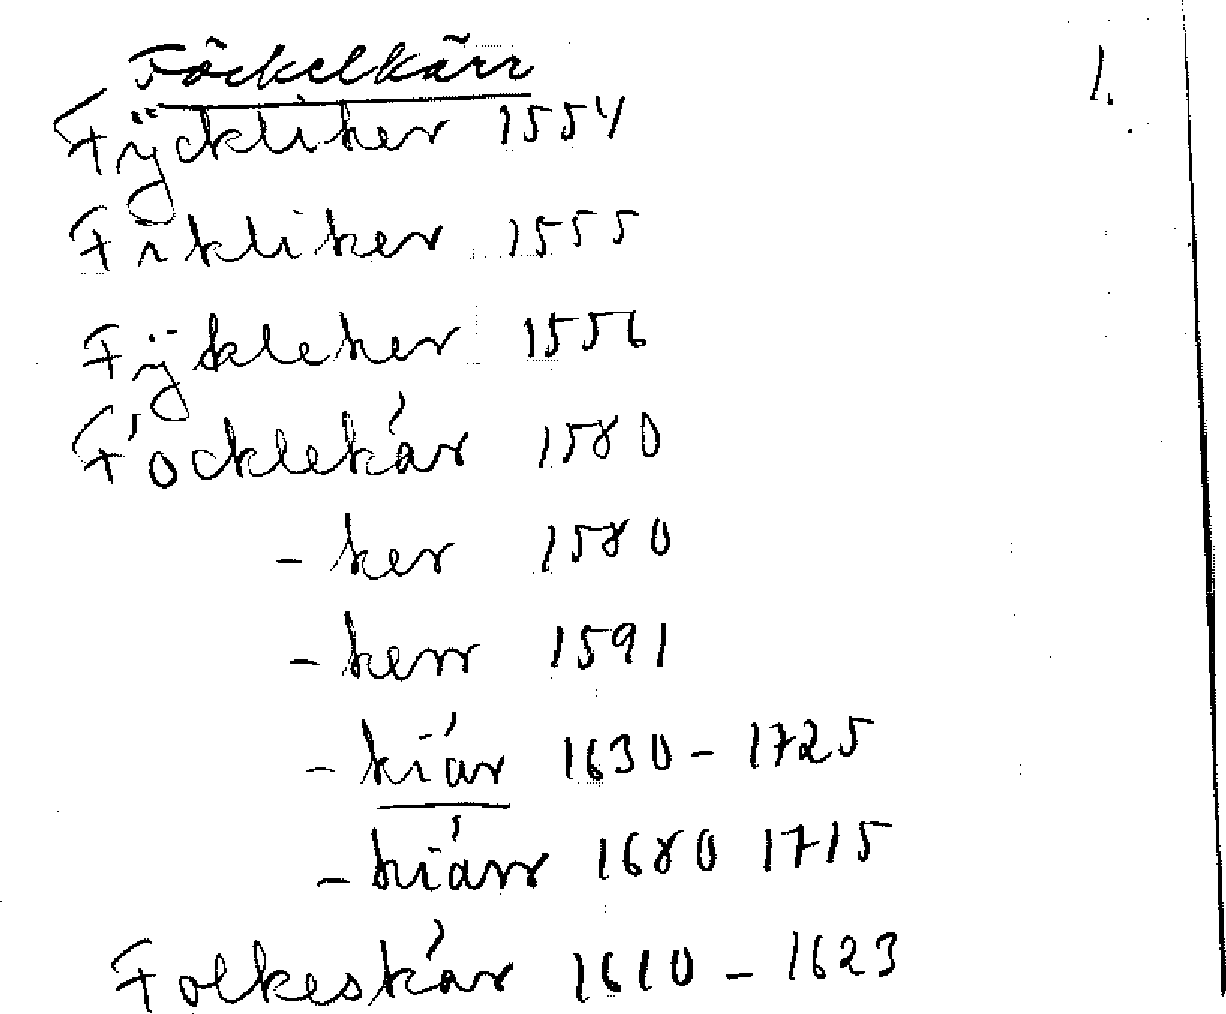 Föckelkärr
1.
Fÿckliker 1554
Fikliker 1555
Fÿkleker 1556
Föcklekár 1580
- ker 1580
- kerr 1591
- kiár 1630 - 1725
- kiárr 1680 1715
Folkeskár 1610 - 1623